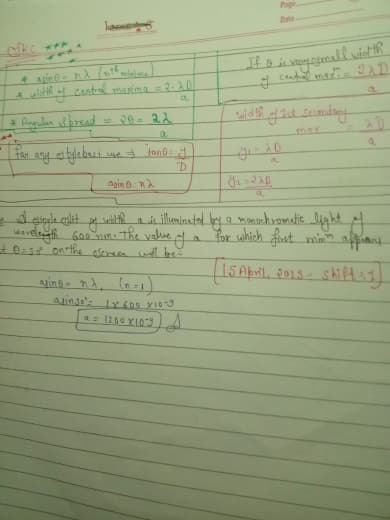 Page
Date
* asinθ = nλ (nth minima)
* width of central maxima = 2·λD/a
* Angular spread = 2θ = 2λ/a
for any style best use ⇒ tanθ = y/D
asinθ = nλ
If θ is very small width
of central max^m = 2λD/a
width of 1st secondary
max = λD/a
y1 = λD/a
y2 = 2λD/a
A single slit of width a is illuminated by a monochromatic light of
wavelength 600 nm. The value of a for which first min^m appears
at θ = 30° on the screen will be:-
[15 April, 2023 - shift - 1]
asinθ = nλ, (n=1)
asin30° = 1 x 600 x10^-9
a = 1200 x10^-9